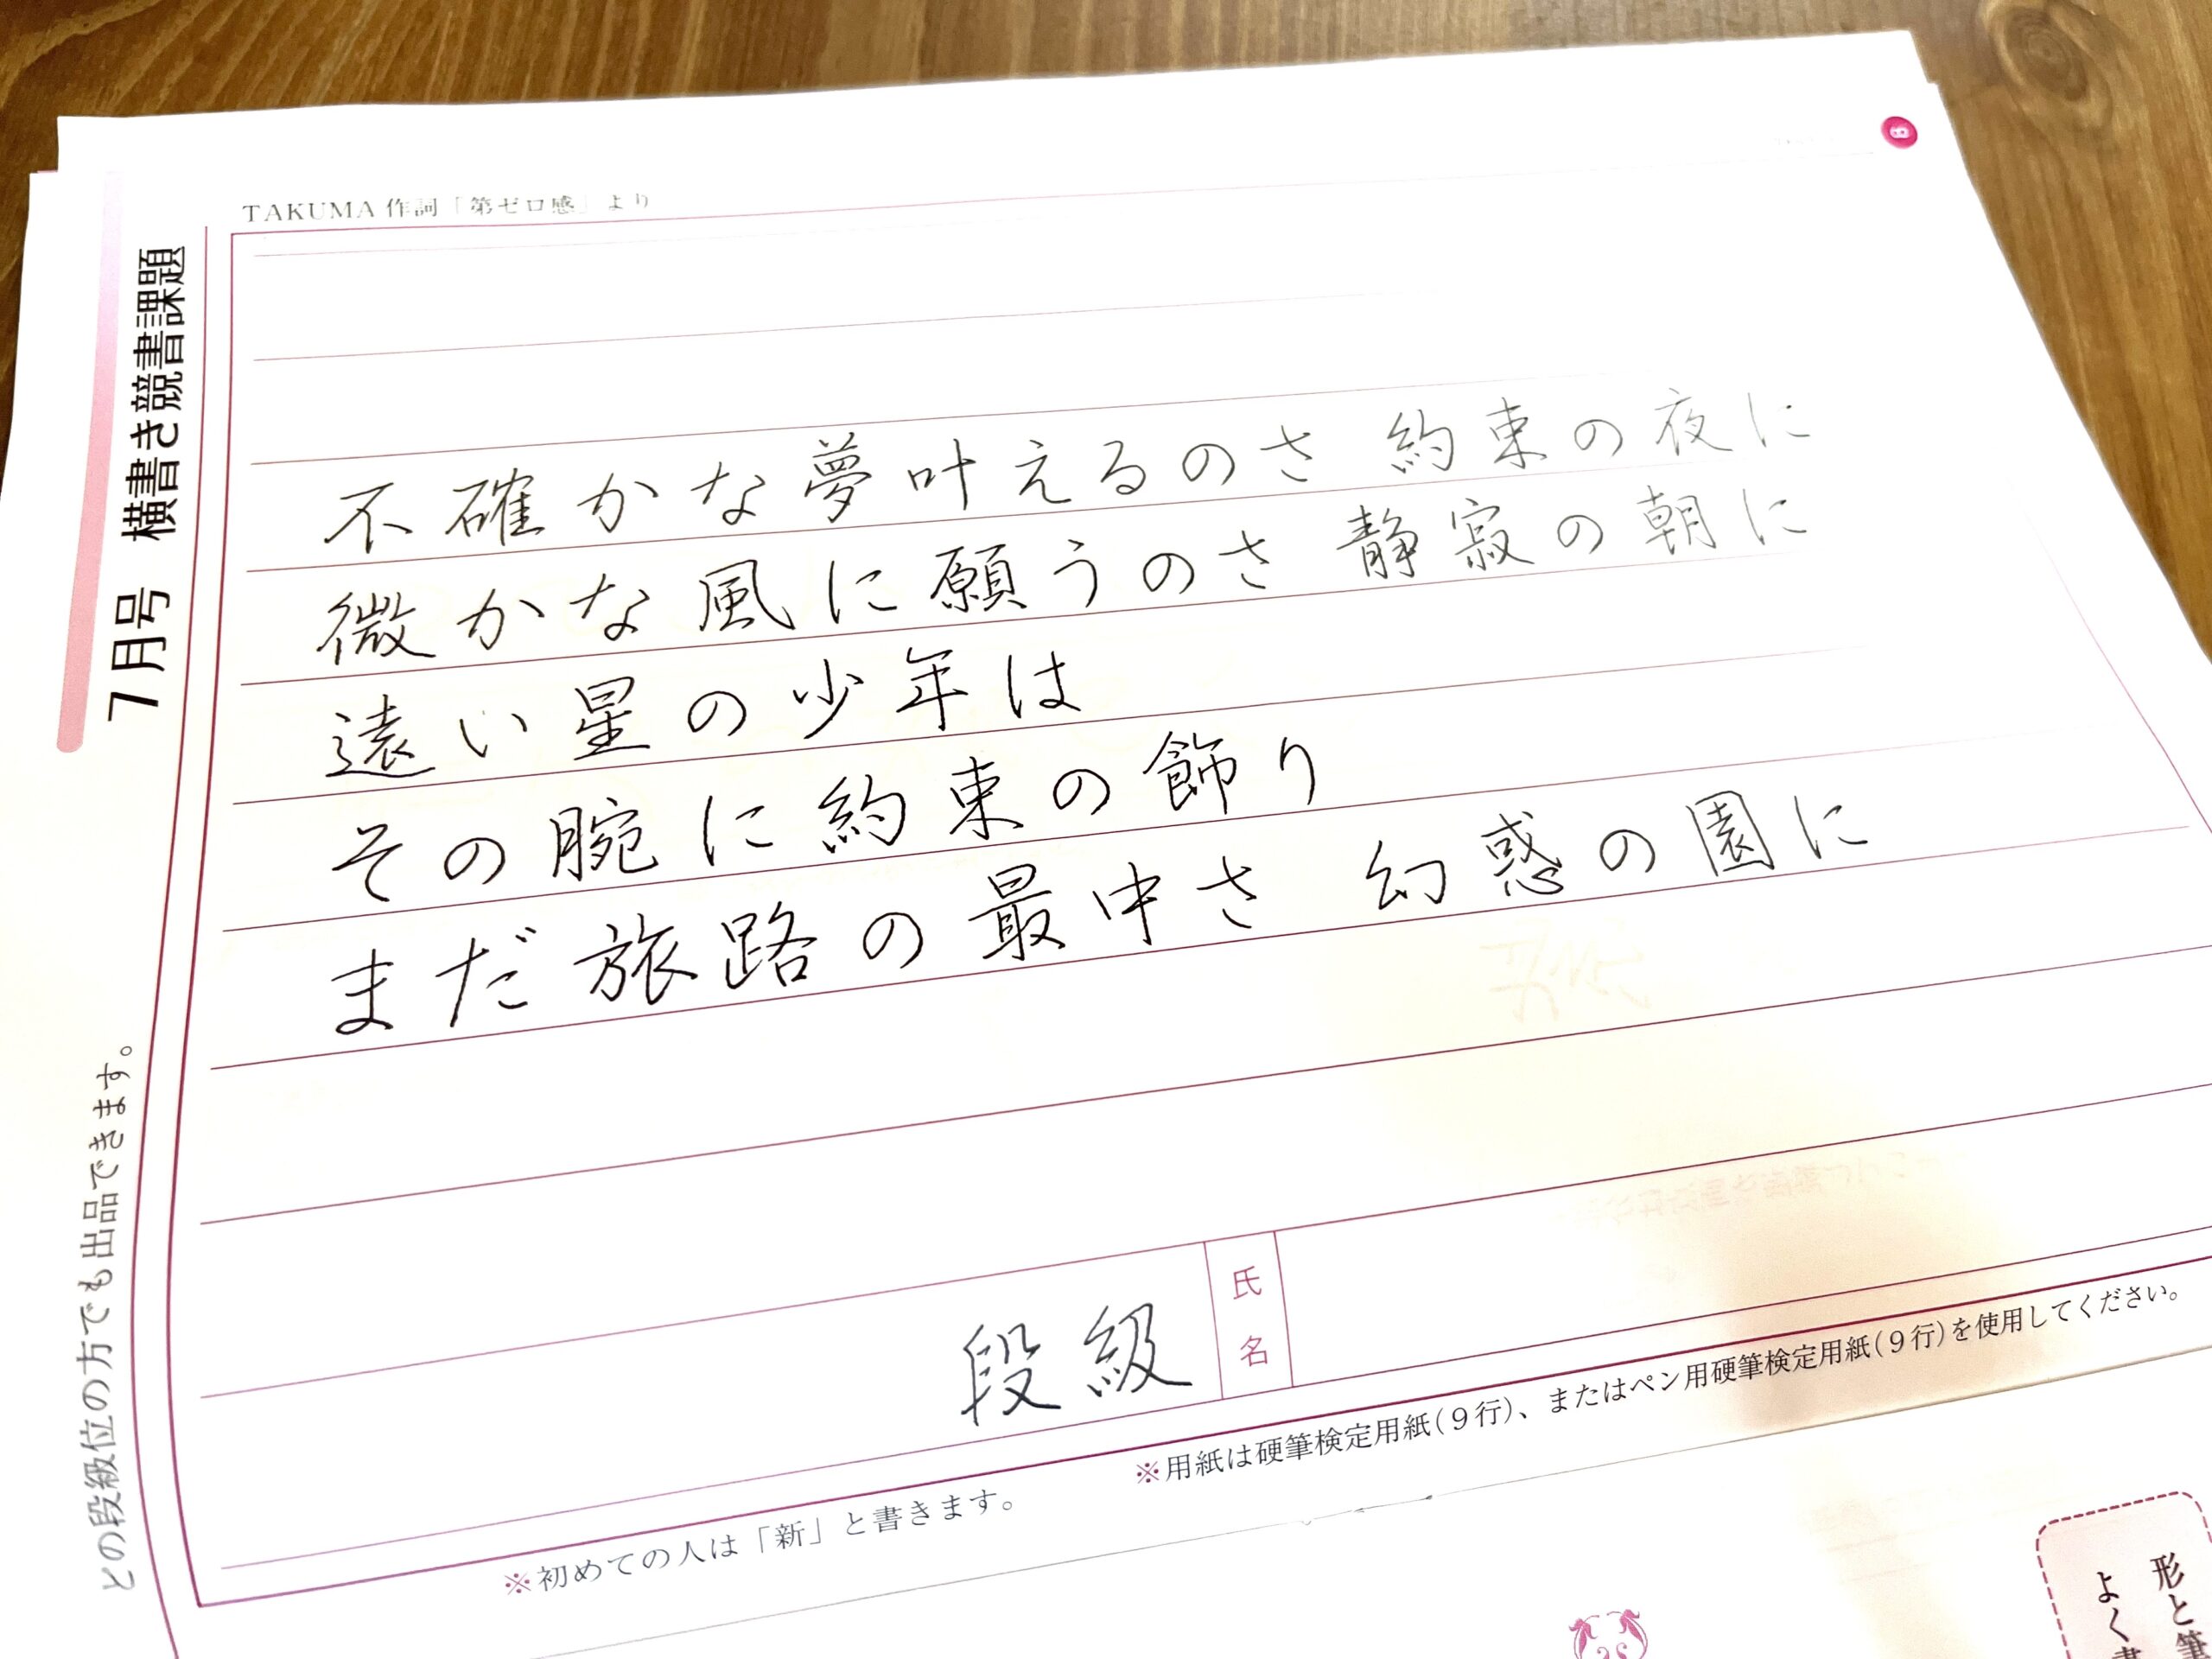 TAKUMA 作詞「第ゼロ感」より
7月号 横書き競書課題
どの段級位の方でも出品できます。
不確かな夢叶えるのさ 約束の夜に
微かな風に願うのさ 静寂の朝に
遠い星の少年は
その腕に約束の飾り
まだ旅路の最中さ 幻惑の園に
段級
氏名
※初めての人は「新」と書きます。
※用紙は硬筆検定用紙(9行)、またはペン用硬筆検定用紙(9行)を使用してください。
形と筆
よく書